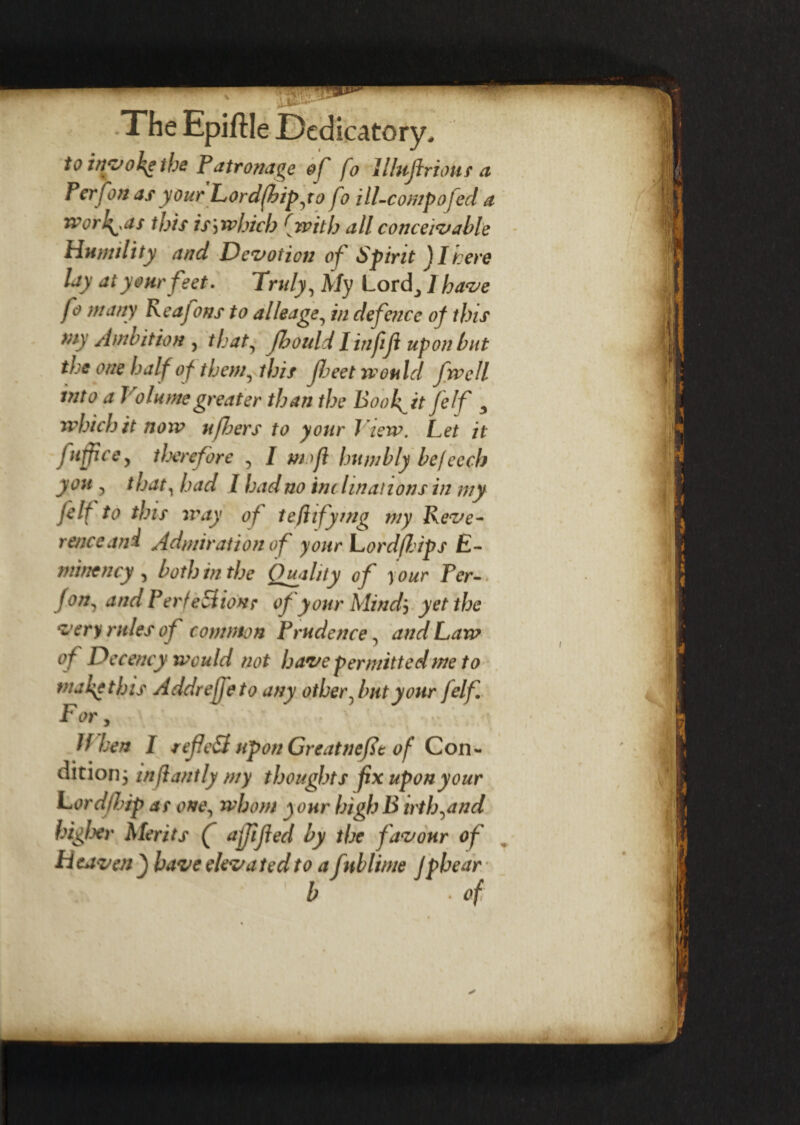 The Epiſtle Dedicatory.
to invoke the Patronage of ſo Illuſtrious a
Perſon as your Lordſhip, to ſo ill-compoſed a
work, as this is; which (with all conceivable
Humility and Devotion of Spirit) I here
lay at your feet. Truly, My Lord, I have
ſo many Reaſons to alleage, in defence of this
my Ambition, that, ſhould I inſiſt upon but
the one half of them, this ſheet would ſwell
into a Volume greater than the Book it ſelf,
which it now uſhers to your View. Let it
ſuffice, therefore, I moſt humbly beſeech
you, that, had I had no inclinations in my
ſelf to this way of teſtifying my Reve-
rence and Admiration of your Lordſhips E-
minency, both in the Quality of your Per-
ſon, and Perfections of your Mind; yet the
very rules of common Prudence, and Law
of Decency would not have permitted me to
make this Addreſſe to any other, but your ſelf.
For,
When I reflect upon Greatneſſe of Con-
dition; inſtantly my thoughts fix upon your
Lordſhip as one, whom your high Birth, and
higher Merits (aſſiſted by the favour of
Heaven) have elevated to a ſublime ſphear
b of